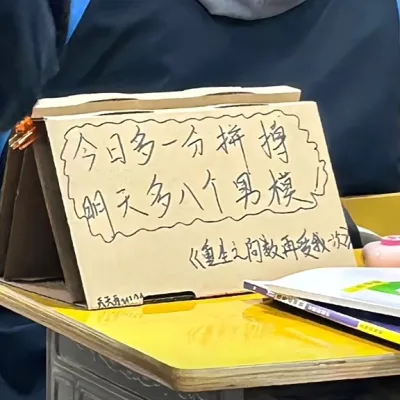 今日多一分拼搏
明天多八个男模
《重生之问数再爱我一次》